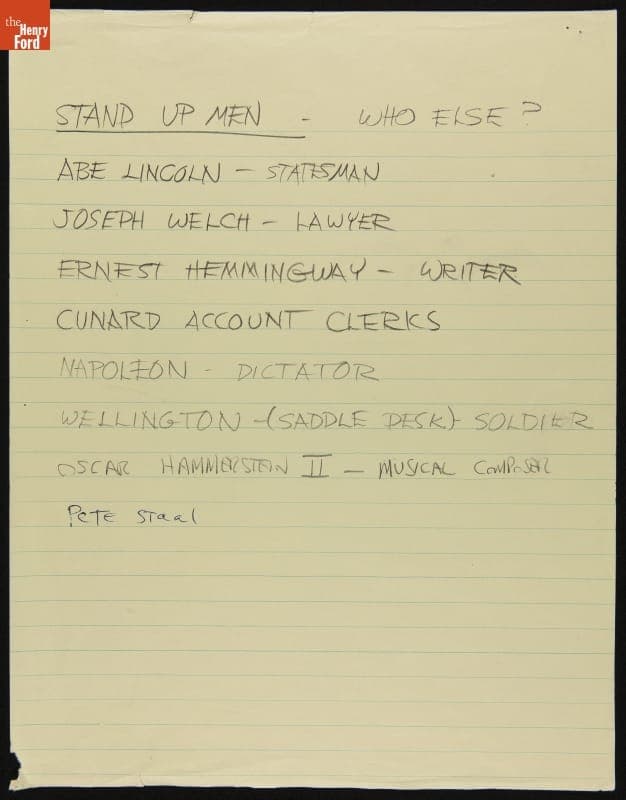 the
Henry
Ford
STAND UP MEN - WHO ELSE?
ABE LINCOLN - STATESMAN
JOSEPH WELCH - LAWYER
ERNEST HEMMINGWAY - WRITER
CUNARD ACCOUNT CLERKS
NAPOLEON - DICTATOR
WELLINGTON -(SADDLE DESK)- SOLDIER
OSCAR HAMMERSTEIN II - MUSICAL COMPOSER
Pete Staal